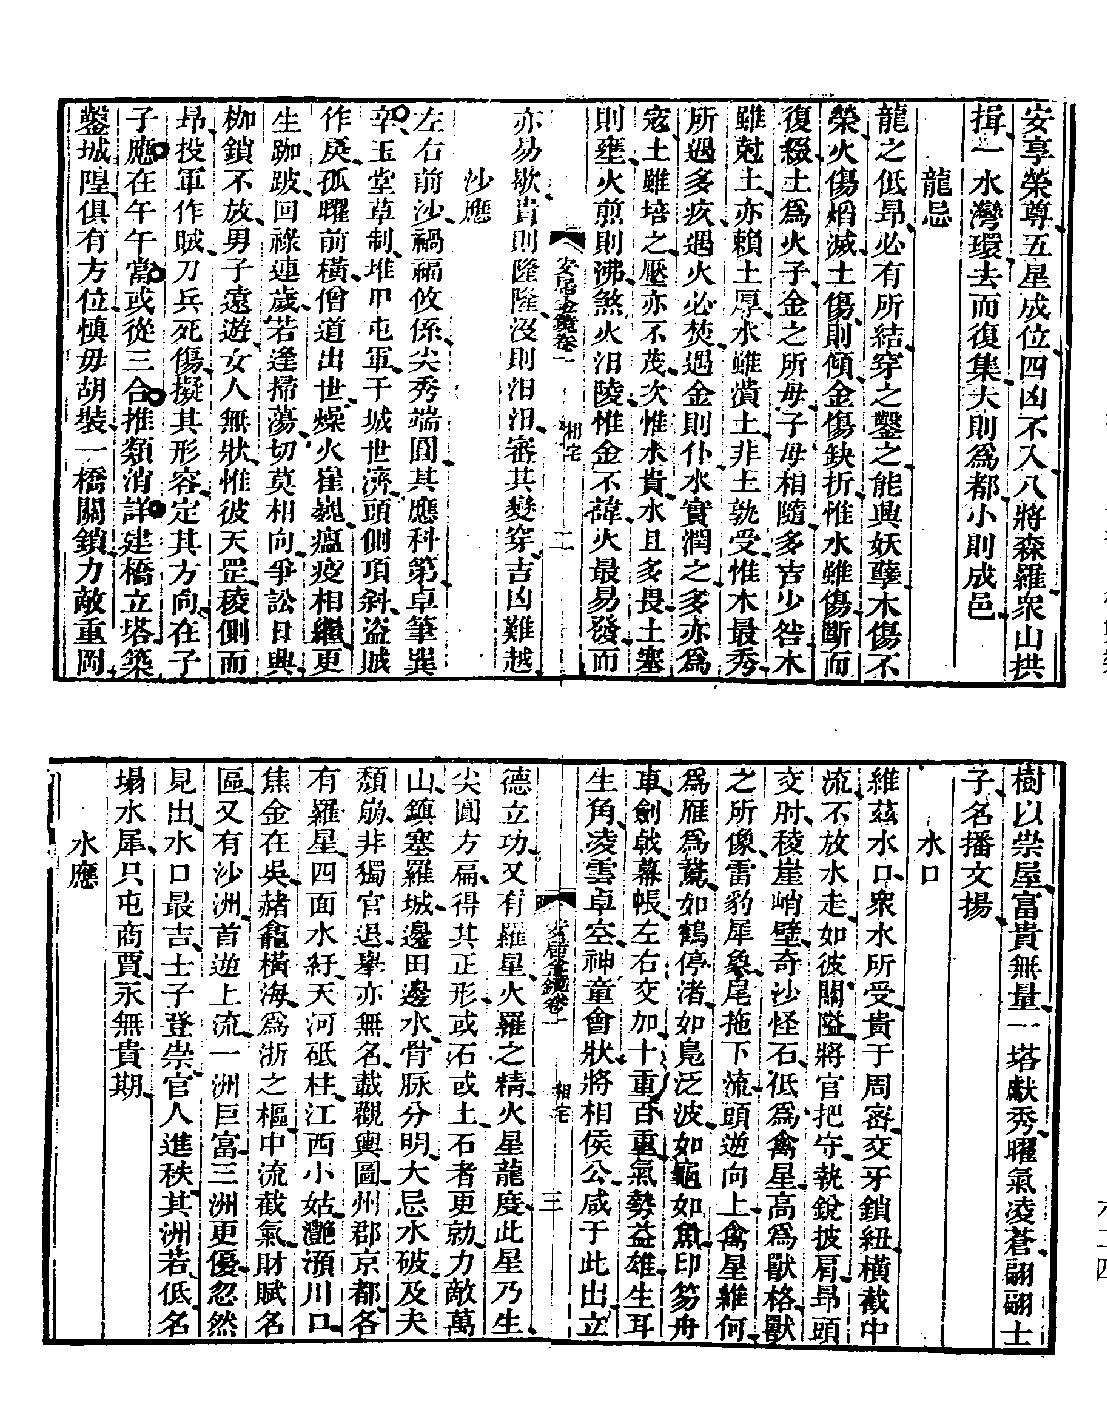 安享榮尊五星成位四凶不入八將森羅衆山拱
揖一水灣環去而復集大則爲都小則成邑
龍忌
龍之低昂必有所結穿之鑿之能興妖孽木傷不
榮火傷焰滅土傷則傾金傷缺折惟水雖傷斷而
復綴土爲火子金之所母子母相隨多吉少咎木
雖尅土亦賴土厚水雖潰土非土孰受惟木最秀
所遇多疚遇火必焚遇金則仆水實潤之多亦爲
寇土雖培之壓亦不茂次惟水貴水且多畏土塞
則壅火煎則沸煞火汨陵惟金不諱火最易發而
安居金鏡卷一 相宅 二
亦易歇貴則隆隆沒則汨汨審其變穿吉凶難越
沙應
左右前沙禍福攸係尖秀端圓其應科第卓筆巽
辛玉堂草制堆甲屯軍干城世濟頭側項斜盜賊
作戾孤曜前橫僧道出世燥火崔巍瘟疫相繼更
生跏跛回祿連歲若逢掃蕩切莫相向爭訟日興
枷鎖不放男子遠遊女人無狀惟彼天罡稜側而
昂投軍作賊刀兵死傷擬其形容定其方向在子
子應在午午當或從三合推類消詳建橋立塔築
鑿城隍俱有方位慎毋胡裝一橋關鎖力敵重岡
樹以崇屋富貴無量一塔獻秀曜氣凌蒼翩翩士
子名播文揚
水口
維茲水口衆水所受貴于周密交牙鎖紐橫截中
流不放水走如彼關隘將官把守執銳披肩昂頭
交肘稜崖峭壁奇沙怪石低爲禽星高爲獸格獸
之所像雷豹犀象尾拖下流頭逆向上禽星維何
爲雁爲鵞如鶴停渚如鳧泛波如龜如魚印笏舟
車劍戟幕帳左右交加十重百重氣勢益雄生耳
生角凌雲卓空神童會狀將相侯公咸于此出立
安居金鏡卷一 相宅 三
德立功又有羅星火羅之精火星龍度此星乃生
尖圓方扁得其正形或石或土石者更勍力敵萬
山鎮塞羅城邊田邊水骨脉分明大忌水破及夫
頹崩非獨官退擧亦無名載觀輿圖州郡京都各
有羅星四面水紆天河砥柱江西小姑灔澦川口
焦金在吳赭龕橫海爲浙之樞中流截氣財賦名
區又有沙洲首逆上流一洲巨富三洲更優忽然
見出水口最吉士子登崇官人進秩其洲若低名
塌水犀只屯商賈永無貴期
水應